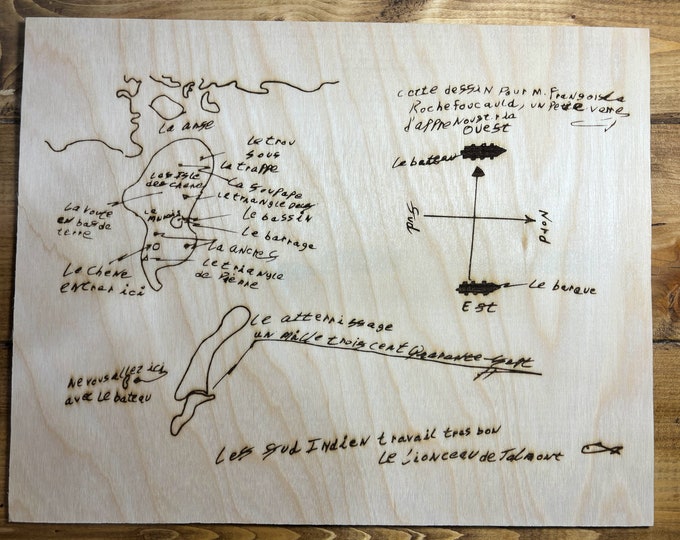 Cette dessin Pour M. François La
Rochefoucauld, un
d'appre Nous
OUEST
Le bateau
Sud
Nord
Le barque
Est
La anse
Le trou
Sous
La trappe
La Soupape
Le triangle
Le bassin
Le barrage
La ancre
Le triangle
de Pierre
La voute
en bas de
terre
Le Chene
entrer ici
Le atterrissage
un mille trois cent Quarante
Ne vous allez ici
avec Le bateau
Les Sud Indien travail tres bon
Le Lionceau de Talmont